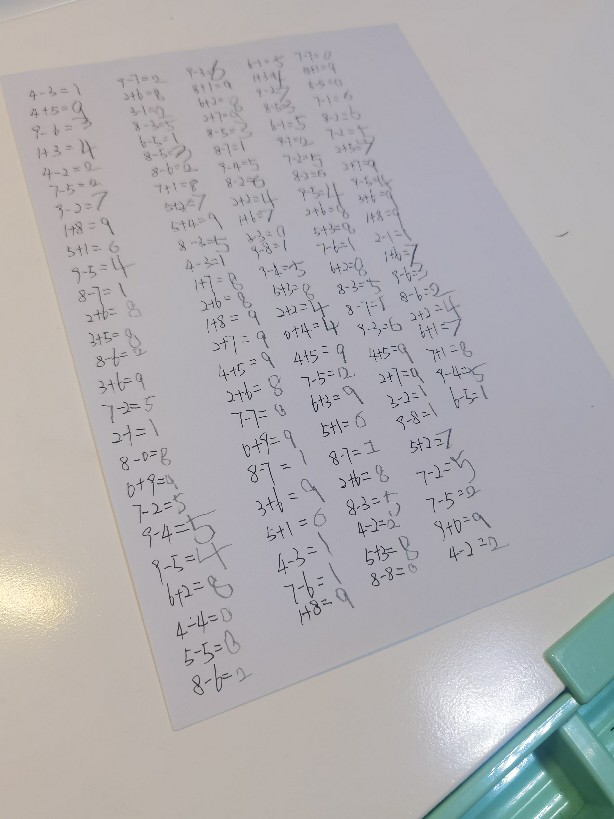 4-3=1
4+5=9
9-6=3
1+3=4
4-2=2
7-5=2
9-2=7
1+8=9
5+1=6
9-5=4
8-7=1
2+6=8
3+5=8
8-6=2
3+6=9
7-2=5
2-1=1
8-0=8
0+9=9
7-2=5
9-4=5
9-5=4
6+2=8
4-4=0
5-5=0
8-6=2
9-7=2
2+6=8
3-1=2
8-3=5
6-5=1
8-5=3
8-6=2
7+1=8
5+2=7
5+4=9
8-3=5
4-3=1
1+7=8
2+6=8
1+8=9
2+7=9
4+5=9
2+6=8
7-7=0
0+9=9
8-7=1
3+6=9
5+1=6
4-3=1
7-6=1
1+8=9
9-3=6
8+1=9
6+2=8
2+7=9
8-5=3
8-7=1
9-4=5
8-2=6
2+2=4
1+6=7
9-8=1
9-4=5
5+3=8
2+2=4
0+4=4
4+5=9
7-5=2
6+3=9
5+1=6
8-7=1
2+6=8
8-3=5
4-2=2
5+3=8
8-8=0
6-1=5
1+3=4
9-2=7
8-5=3
6-1=5
7-2=5
8-2=6
9-5=4
2+6=8
7-6=1
6+2=8
8-3=5
8-7=1
9-3=6
4+5=9
2+7=9
3-2=1
9-8=1
5+2=7
7-2=5
7-5=2
9+0=9
4-2=2
7-7=0
7-1=6
8-2=6
7-2=5
2+5=7
2+7=9
9-5=4
3+6=9
1+8=9
2-1=1
1+6=7
8-6=2
2+2=4
6+1=7
7+1=8
9-4=5
6-5=1